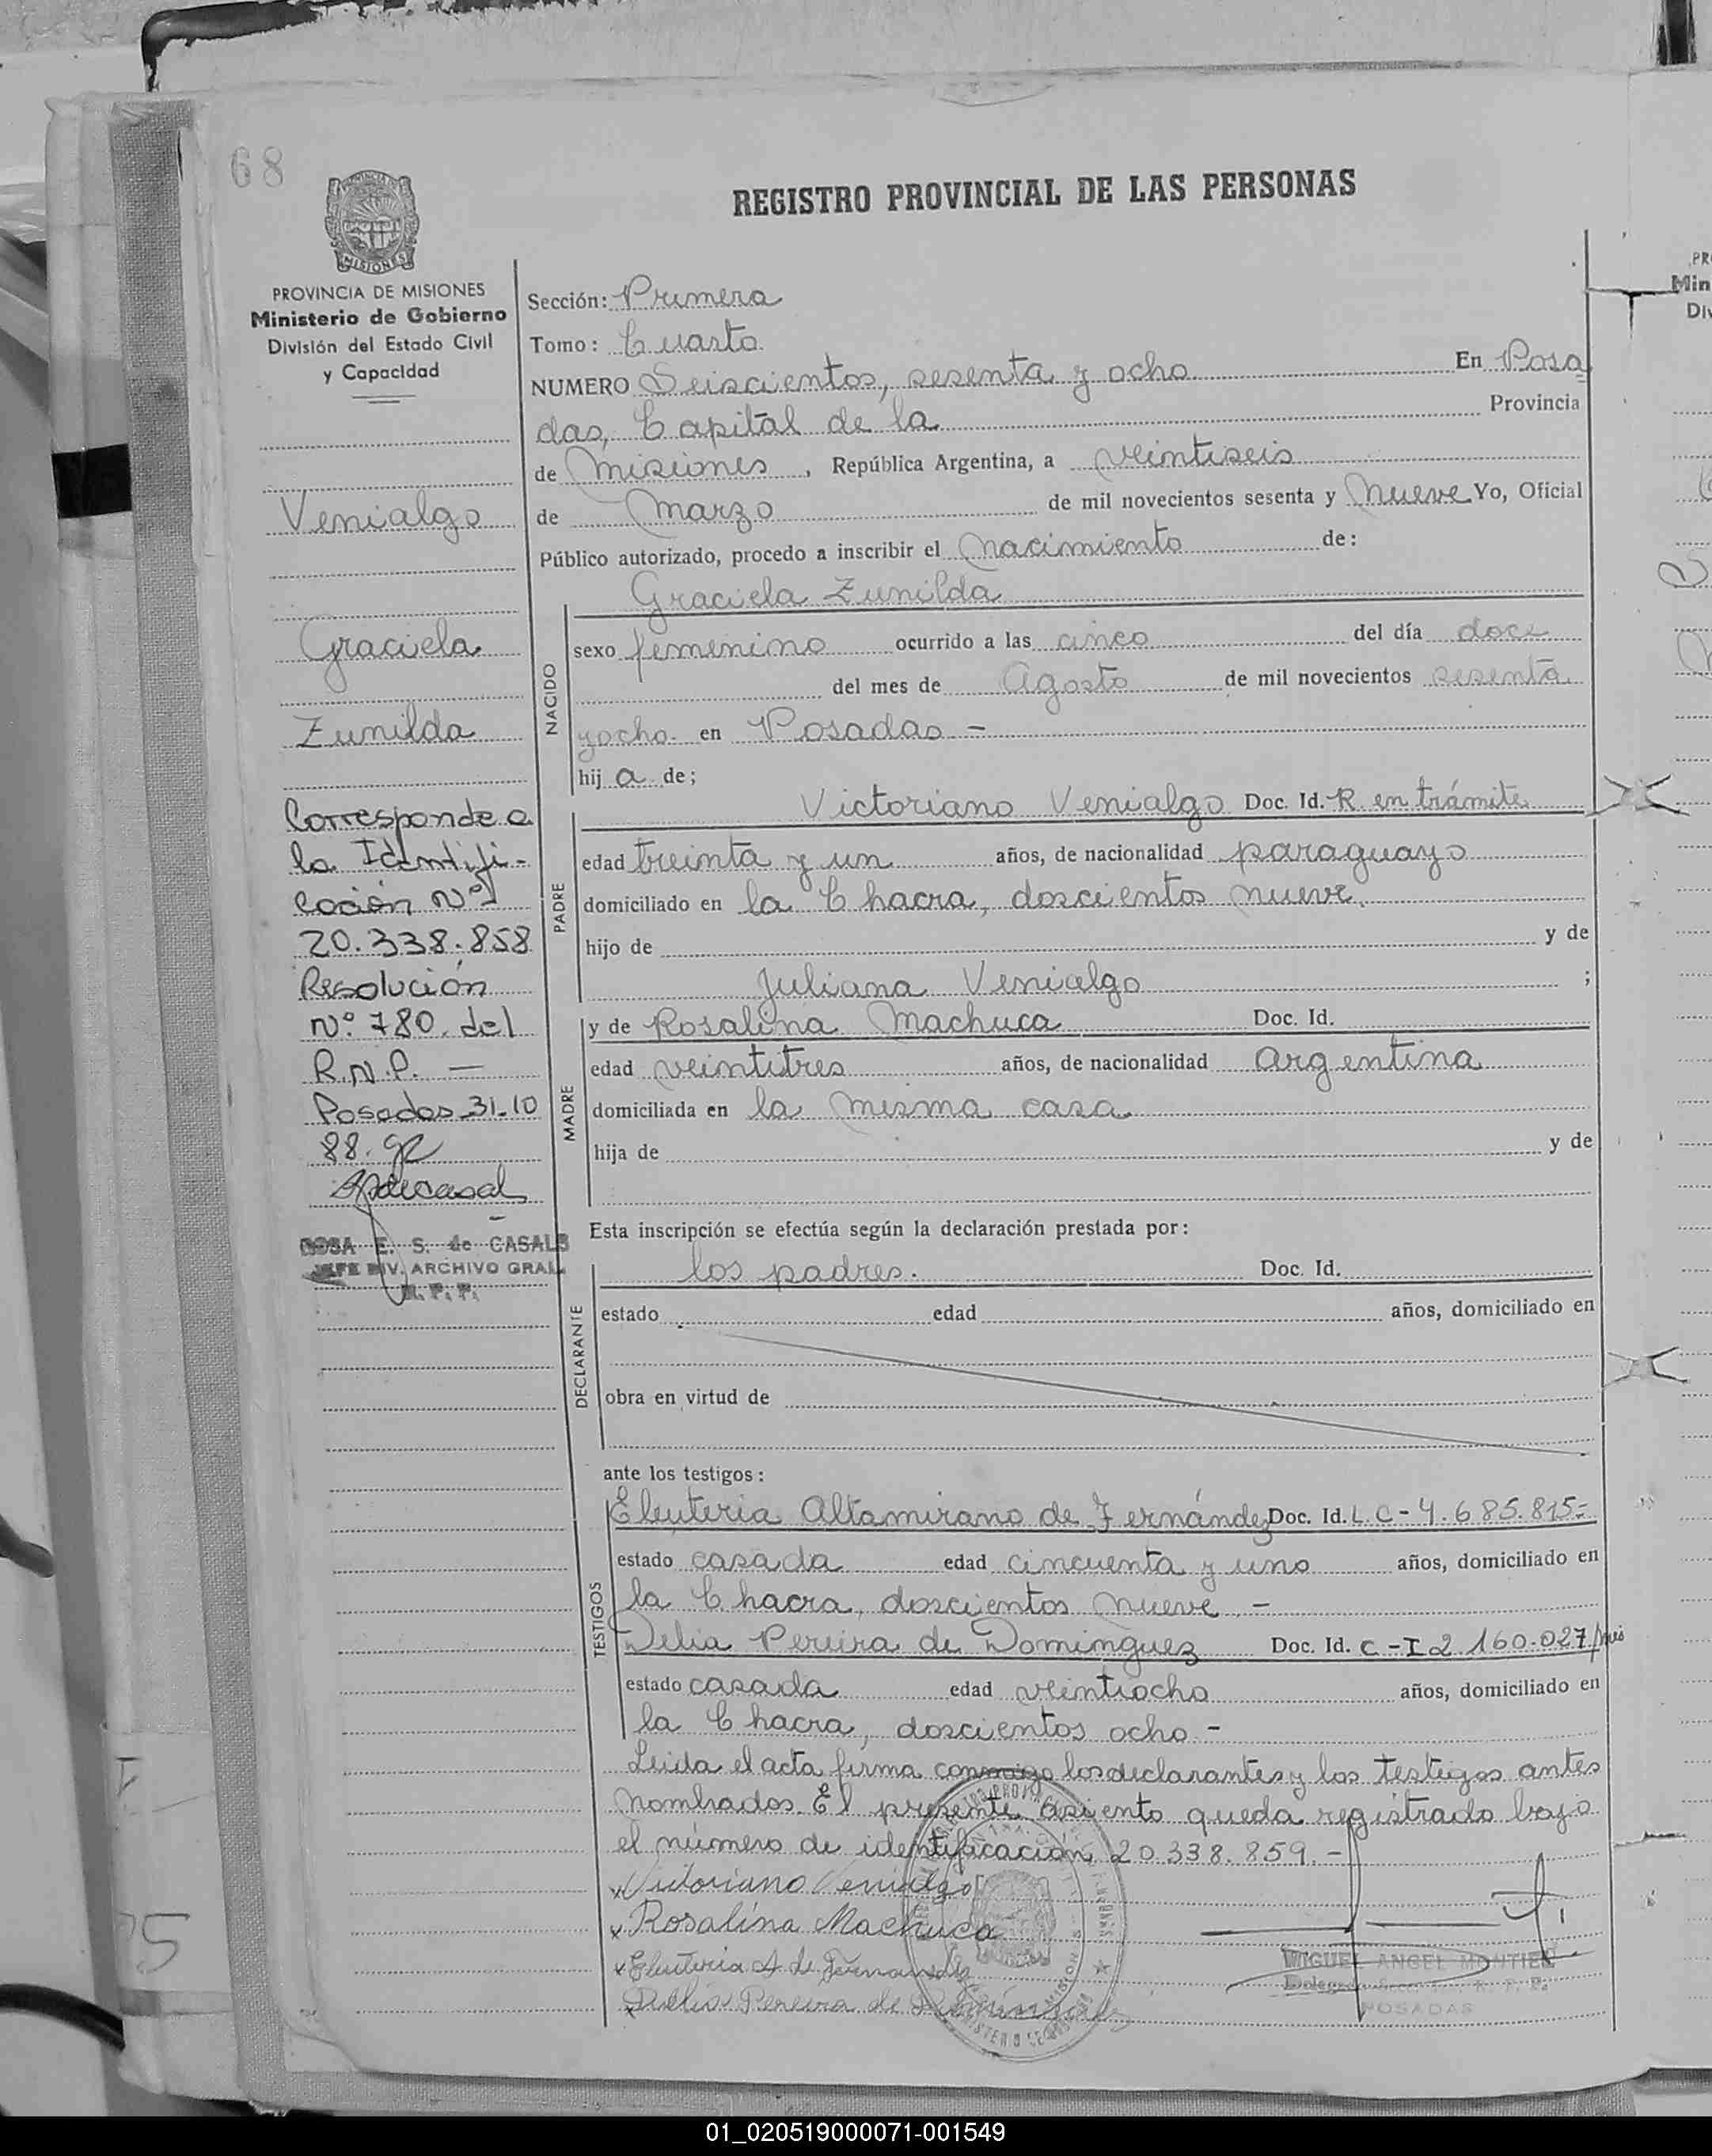 68
PROVINCIA DE MISIONES
Ministerio de Gobierno
División del Estado Civil
y Capacidad
Venialgo
Graciela
Zunilda
Corresponde a
la Identifi-
cación Nº
20.338.858
Resolución
Nº 780. del
R.N.P. —
Posadas 31-10
88.
ROSA E. S. de CASALS
JEFE DIV. ARCHIVO GRAL.
R. P. P.
REGISTRO PROVINCIAL DE LAS PERSONAS
Sección: Primera
Tomo: Cuarto
NUMERO Seiscientos, sesenta y ocho En Posa
das, Capital de la Provincia
de Misiones, República Argentina, a veintiseis
de Marzo de mil novecientos sesenta y nueve Yo, Oficial
Público autorizado, procedo a inscribir el nacimiento de:
Graciela Zunilda
NACIDO
sexo femenino ocurrido a las cinco del día doce
del mes de Agosto de mil novecientos sesenta
y ocho en Posadas -
hij a de;
Victoriano Venialgo Doc. Id. R. en trámite
PADRE
edad treinta y un años, de nacionalidad paraguayo
domiciliado en la Chacra, doscientos nueve.
hijo de y de
Juliana Venialgo ;
y de Rosalina Machuca Doc. Id.
MADRE
edad veintitres años, de nacionalidad argentina
domiciliada en la misma casa
hija de y de
Esta inscripción se efectúa según la declaración prestada por:
los padres. Doc. Id.
DECLARANTE
estado edad años, domiciliado en
obra en virtud de
ante los testigos:
Eleuteria Altamirano de Fernández Doc. Id. L.C-4.685.815=
TESTIGOS
estado casada edad cincuenta y uno años, domiciliado en
la Chacra, doscientos nueve. -
Delia Pereira de Dominguez Doc. Id. C-I 2.160.027/mis
estado casada edad veintiocho años, domiciliado en
la Chacra, doscientos ocho -
Leida el acta firma conmigo los declarantes y los testigos antes
nombrados. El presente asiento queda registrado bajo
el número de identificacación, 20.338.859. -
x Victoriano Venialgo
x Rosalina Machuca
x Eleuteria A de Fernandez
x Delia Pereira de Dominguez
MIGUEL ANGEL MONTIEL
POSADAS
01_020519000071-001549